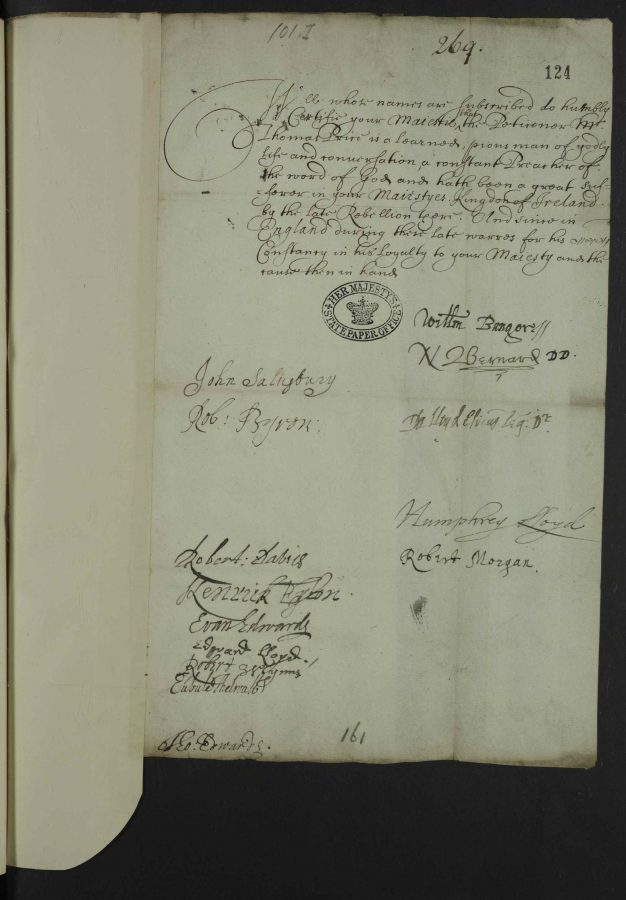 101.I
269.
124
Wee whose names are subscribed do humbly
Certifie your Maiestie, that the Peticoner Mr.
Thomas Price is a learned, pious man of godly
life and conversation, a constant Preacher of
the word of God, and hath been a great suf-
ferer in your Maiestyes Kingdom of Ireland
by the late Rebellion there. And since in
England during these late warres for his
Constancy in his Loyalty to your Maiesty and the
cause then in hand
HER MAJESTY'S
STATE PAPER OFFICE
Willm
N Bernard DD.
John Salusbury
Rob: Byron.
Humphrey Lloyd
Robert Morgan.
Robert: Davies
Kenrick Eyton.
Evan Edwards
Edward Lloyd.
Robert
Tho: Edwards.
161